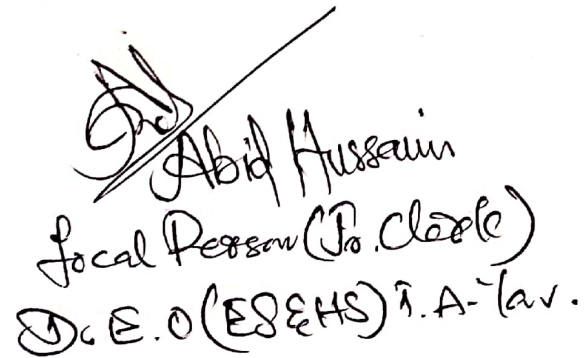 Abid Hussain
focal Person (Jr. Clerk)
D.E.O (ES&HS)